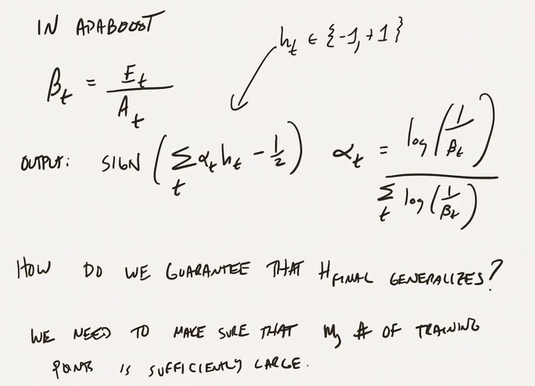 IN ADABOOST
h_t ∈ {-1, +1}
β_t = E_t / A_t
OUTPUT: SIGN (∑_t α_t h_t - 1/2) α_t = log(1/β_t) / ∑_t log(1/β_t)
HOW DO WE GUARANTEE THAT H_FINAL GENERALIZES?
WE NEED TO MAKE SURE THAT m, # OF TRAINING
POINTS IS SUFFICIENTLY LARGE.